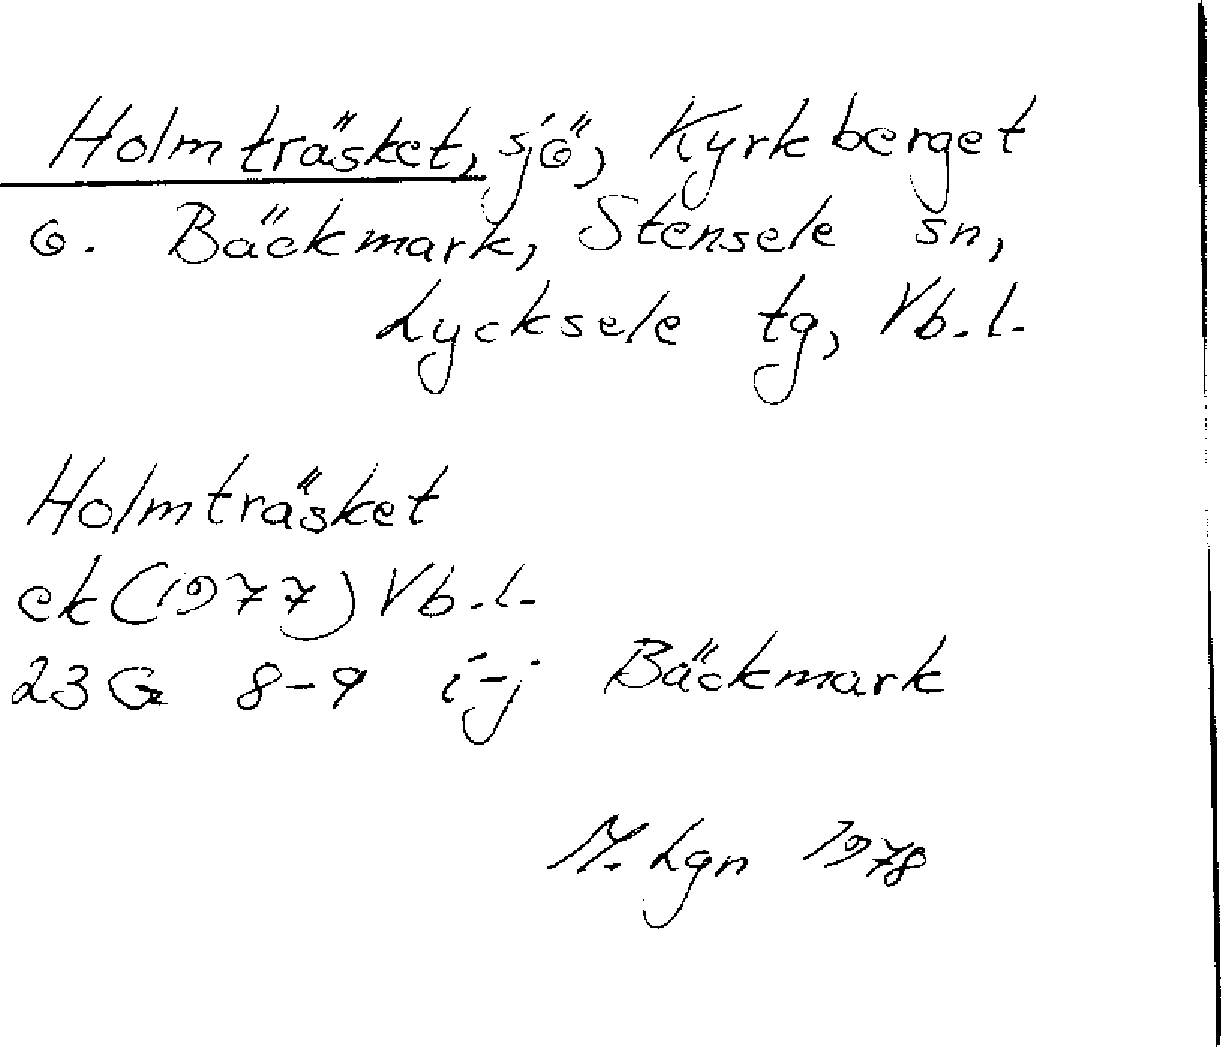 Holmträsket, sjö, Kyrkberget
o. Bäckmark, Stensele sn,
Lycksele tg, Vb. l.
Holmträsket
ek (1977) Vb. l.
23 G 8-9 i-j Bäckmark
M. Lgn 1978